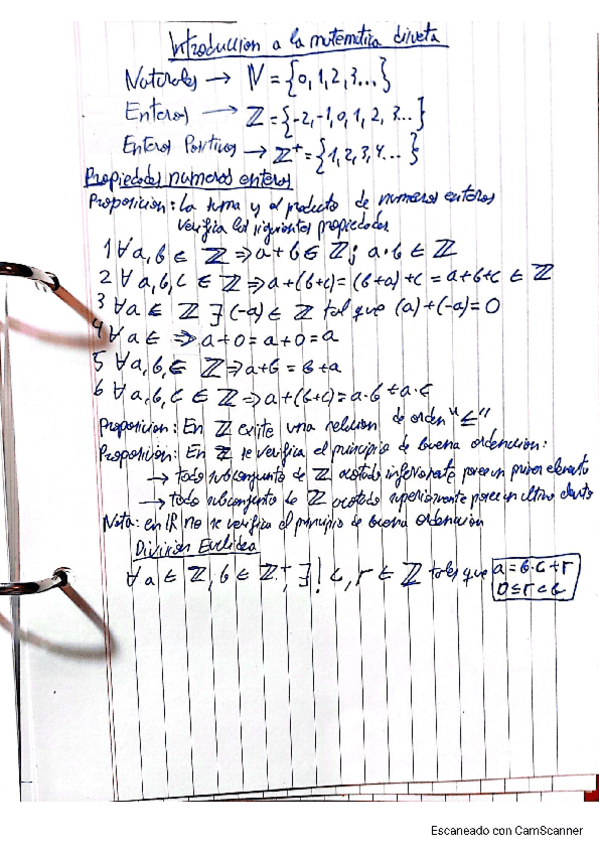 Introduccion a la matematica discreta
Naturales → N = {0, 1, 2, 3...}
Enteros → Z = {-2, -1, 0, 1, 2, 3...}
Enteros Positivos → Z⁺ = {1, 2, 3, 4...}
Propiedades numeros enteros
Proposicion: La suma y el producto de numeros enteros
verifica las siguientes propiedades
1 ∀ a, b ∈ Z ⇒ a + b ∈ Z; a · b ∈ Z
2 ∀ a, b, c ∈ Z ⇒ a + (b + c) = (b + a) + c = a + b + c ∈ Z
3 ∀ a ∈ Z ∃ (-a) ∈ Z tal que (a) + (-a) = 0
4 ∀ a ∈ ⇒ a + 0 = a + 0 = a
5 ∀ a, b, ∈ Z ⇒ a + b = b + a
6 ∀ a, b, c ∈ Z ⇒ a + (b + c) = a · b + a · c
Proposicion: En Z existe una relacion de orden "≤"
Proposicion: En Z se verifica el principio de buena ordenacion:
→ todo subconjunto de Z acotado inferiormente posee un primer elemento
→ todo subconjunto de Z acotado superiormente posee un ultimo elemento
Nota: en IR no se verifica el principio de buena ordenacion
Division Euclidea
∀ a ∈ Z, b ∈ Z⁺, ∃! c, r ∈ Z tales que a = b · c + r
0 ≤ r < b
Escaneado con CamScanner